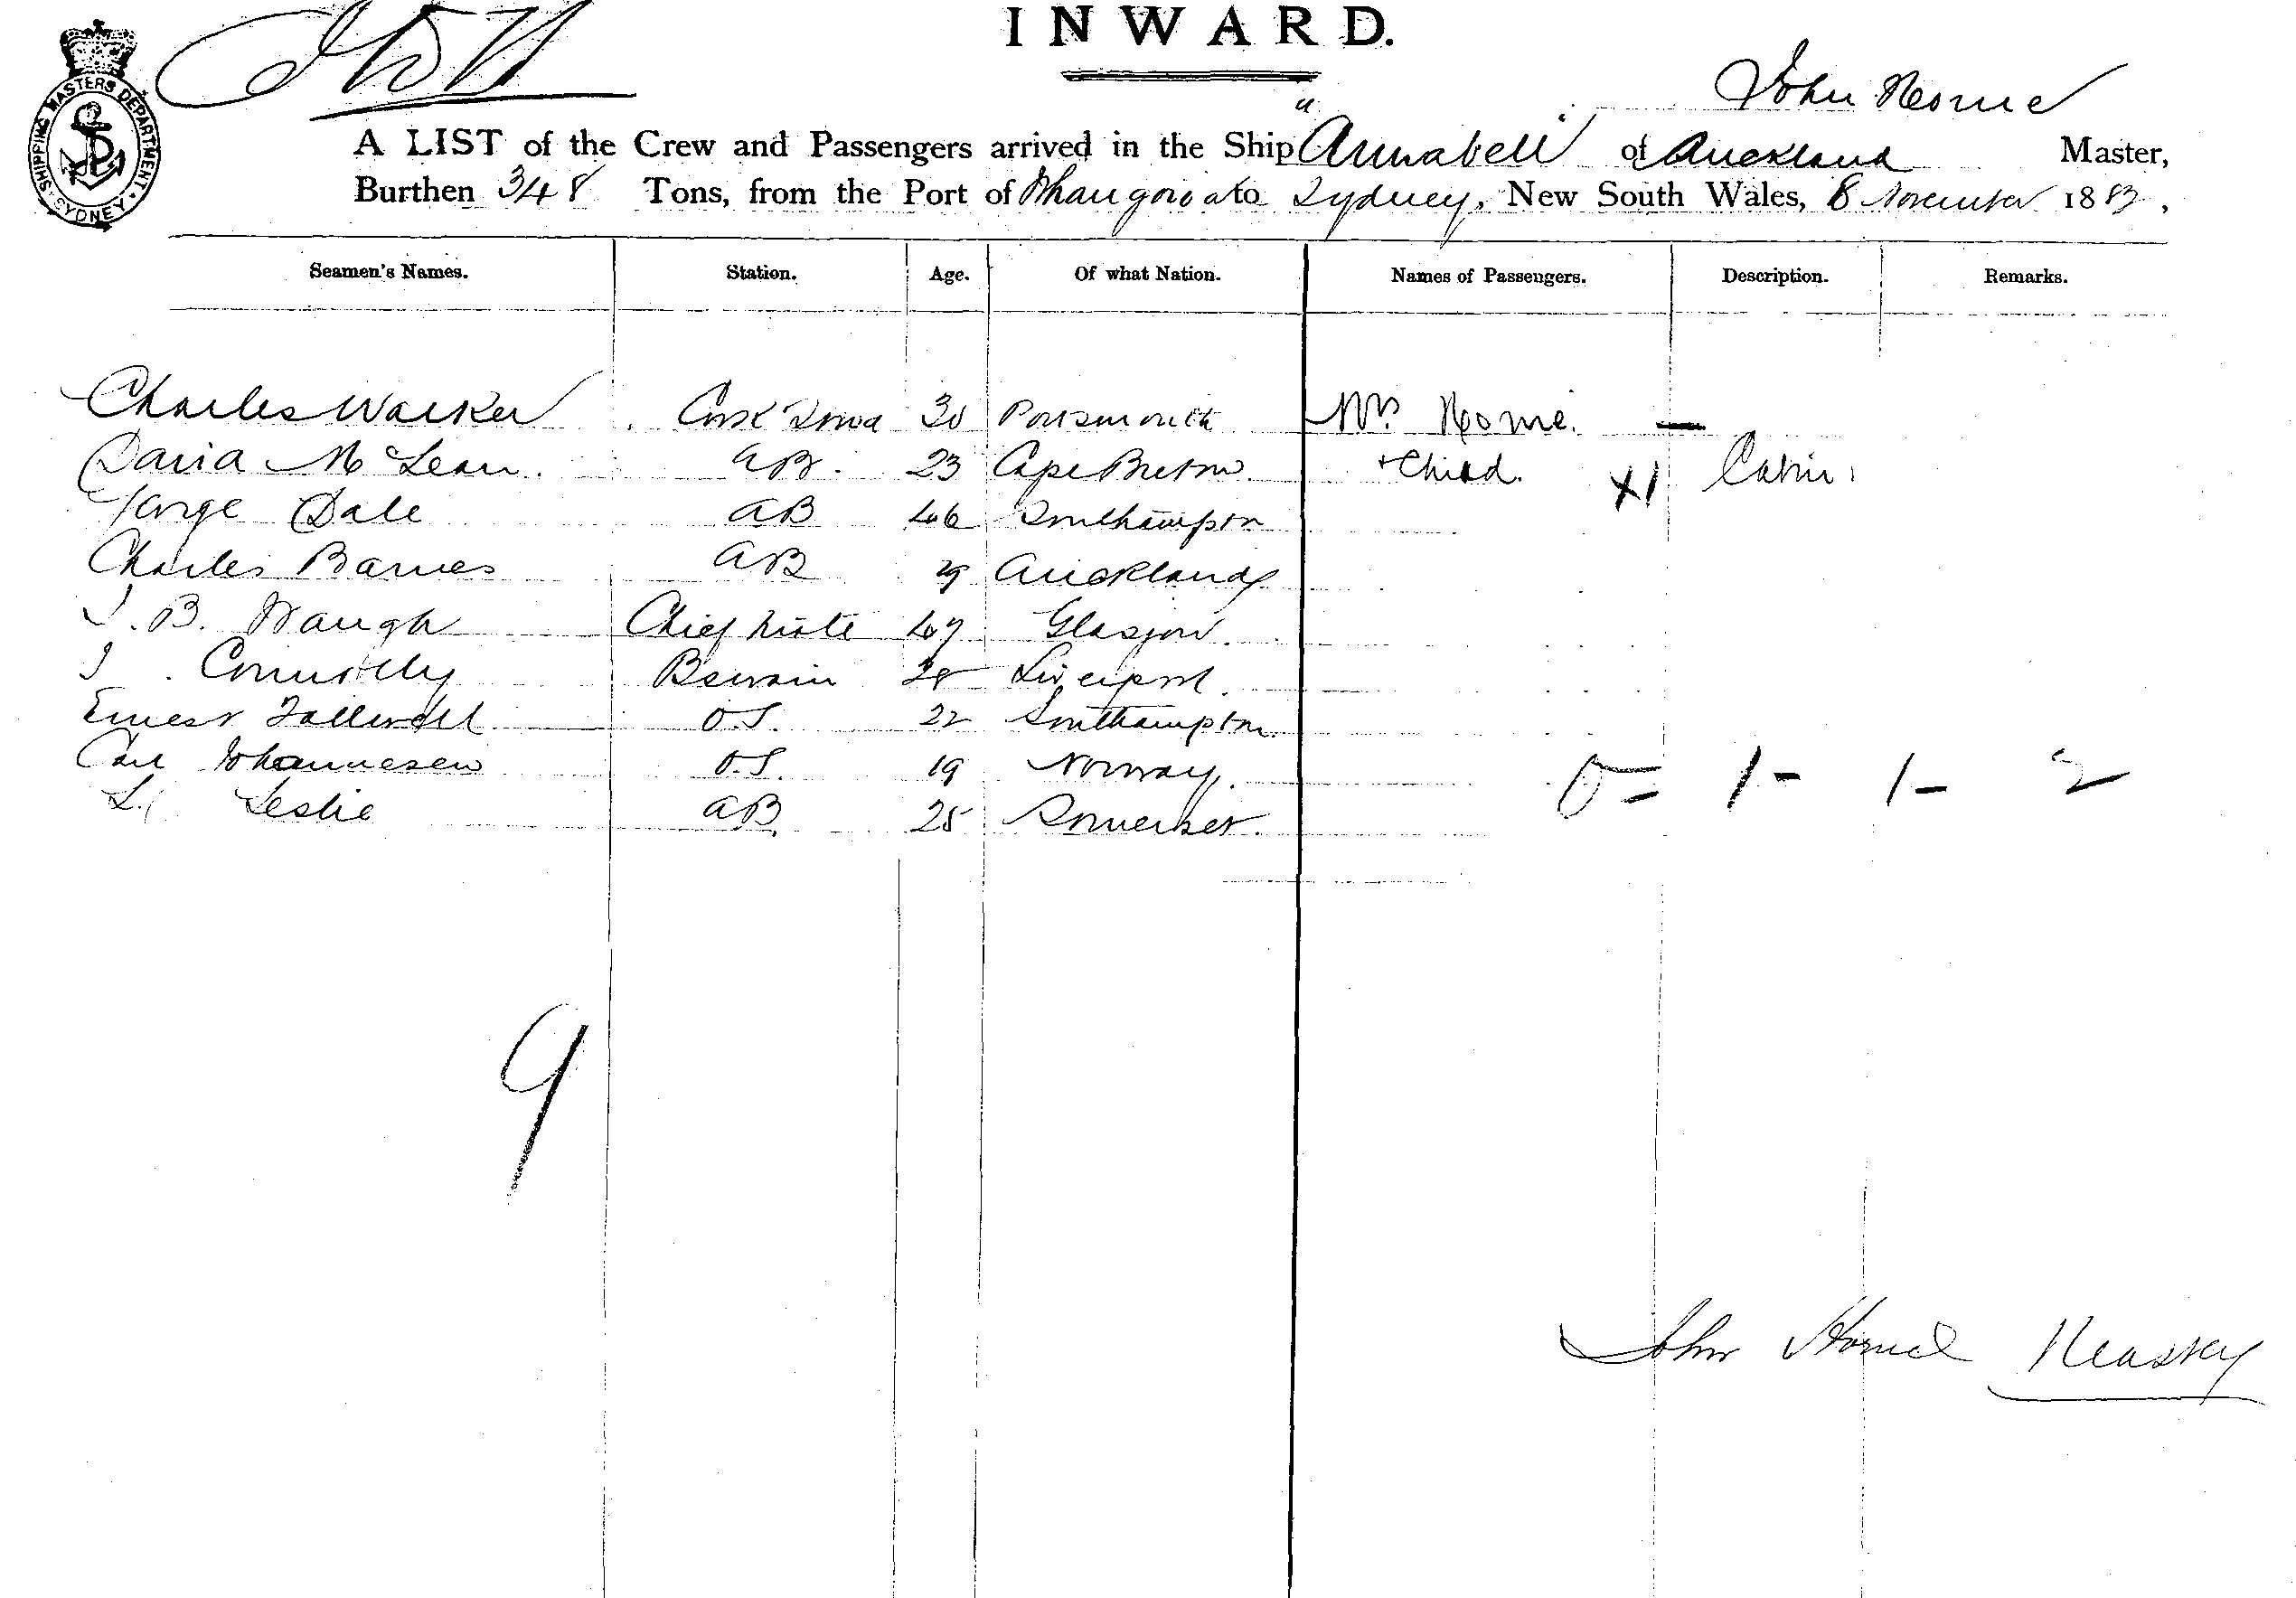 INWARD.
SHIPPING MASTERS DEPARTMENT. SYDNEY
John Horne
A LIST of the Crew and Passengers arrived in the Ship "Annabell" of Auckland Master,
Burthen 348 Tons, from the Port of Whangoroa to Sydney, New South Wales, 8 November 1883,
Seamen's Names. Station. Age. Of what Nation. Names of Passengers. Description. Remarks.
Charles Walker 30 Portsmouth Mrs Horne. —
David Mc Lean. AB. 23 Cape Breton. + Child. X1 Cabin
George Dale AB 46 Southampton
Charles Barnes AB 29 Auckland
J. B. Waugh Chief Mate 47 Glasgow
J. Connolly Boswain 28 Liverpool.
Ernest O.S. 22 Southampton.
Carl Johannesen O.S. 19 Norway. 0 = 1 - 1 - 2
L. Leslie AB 25 Somerset.
9
John Horne